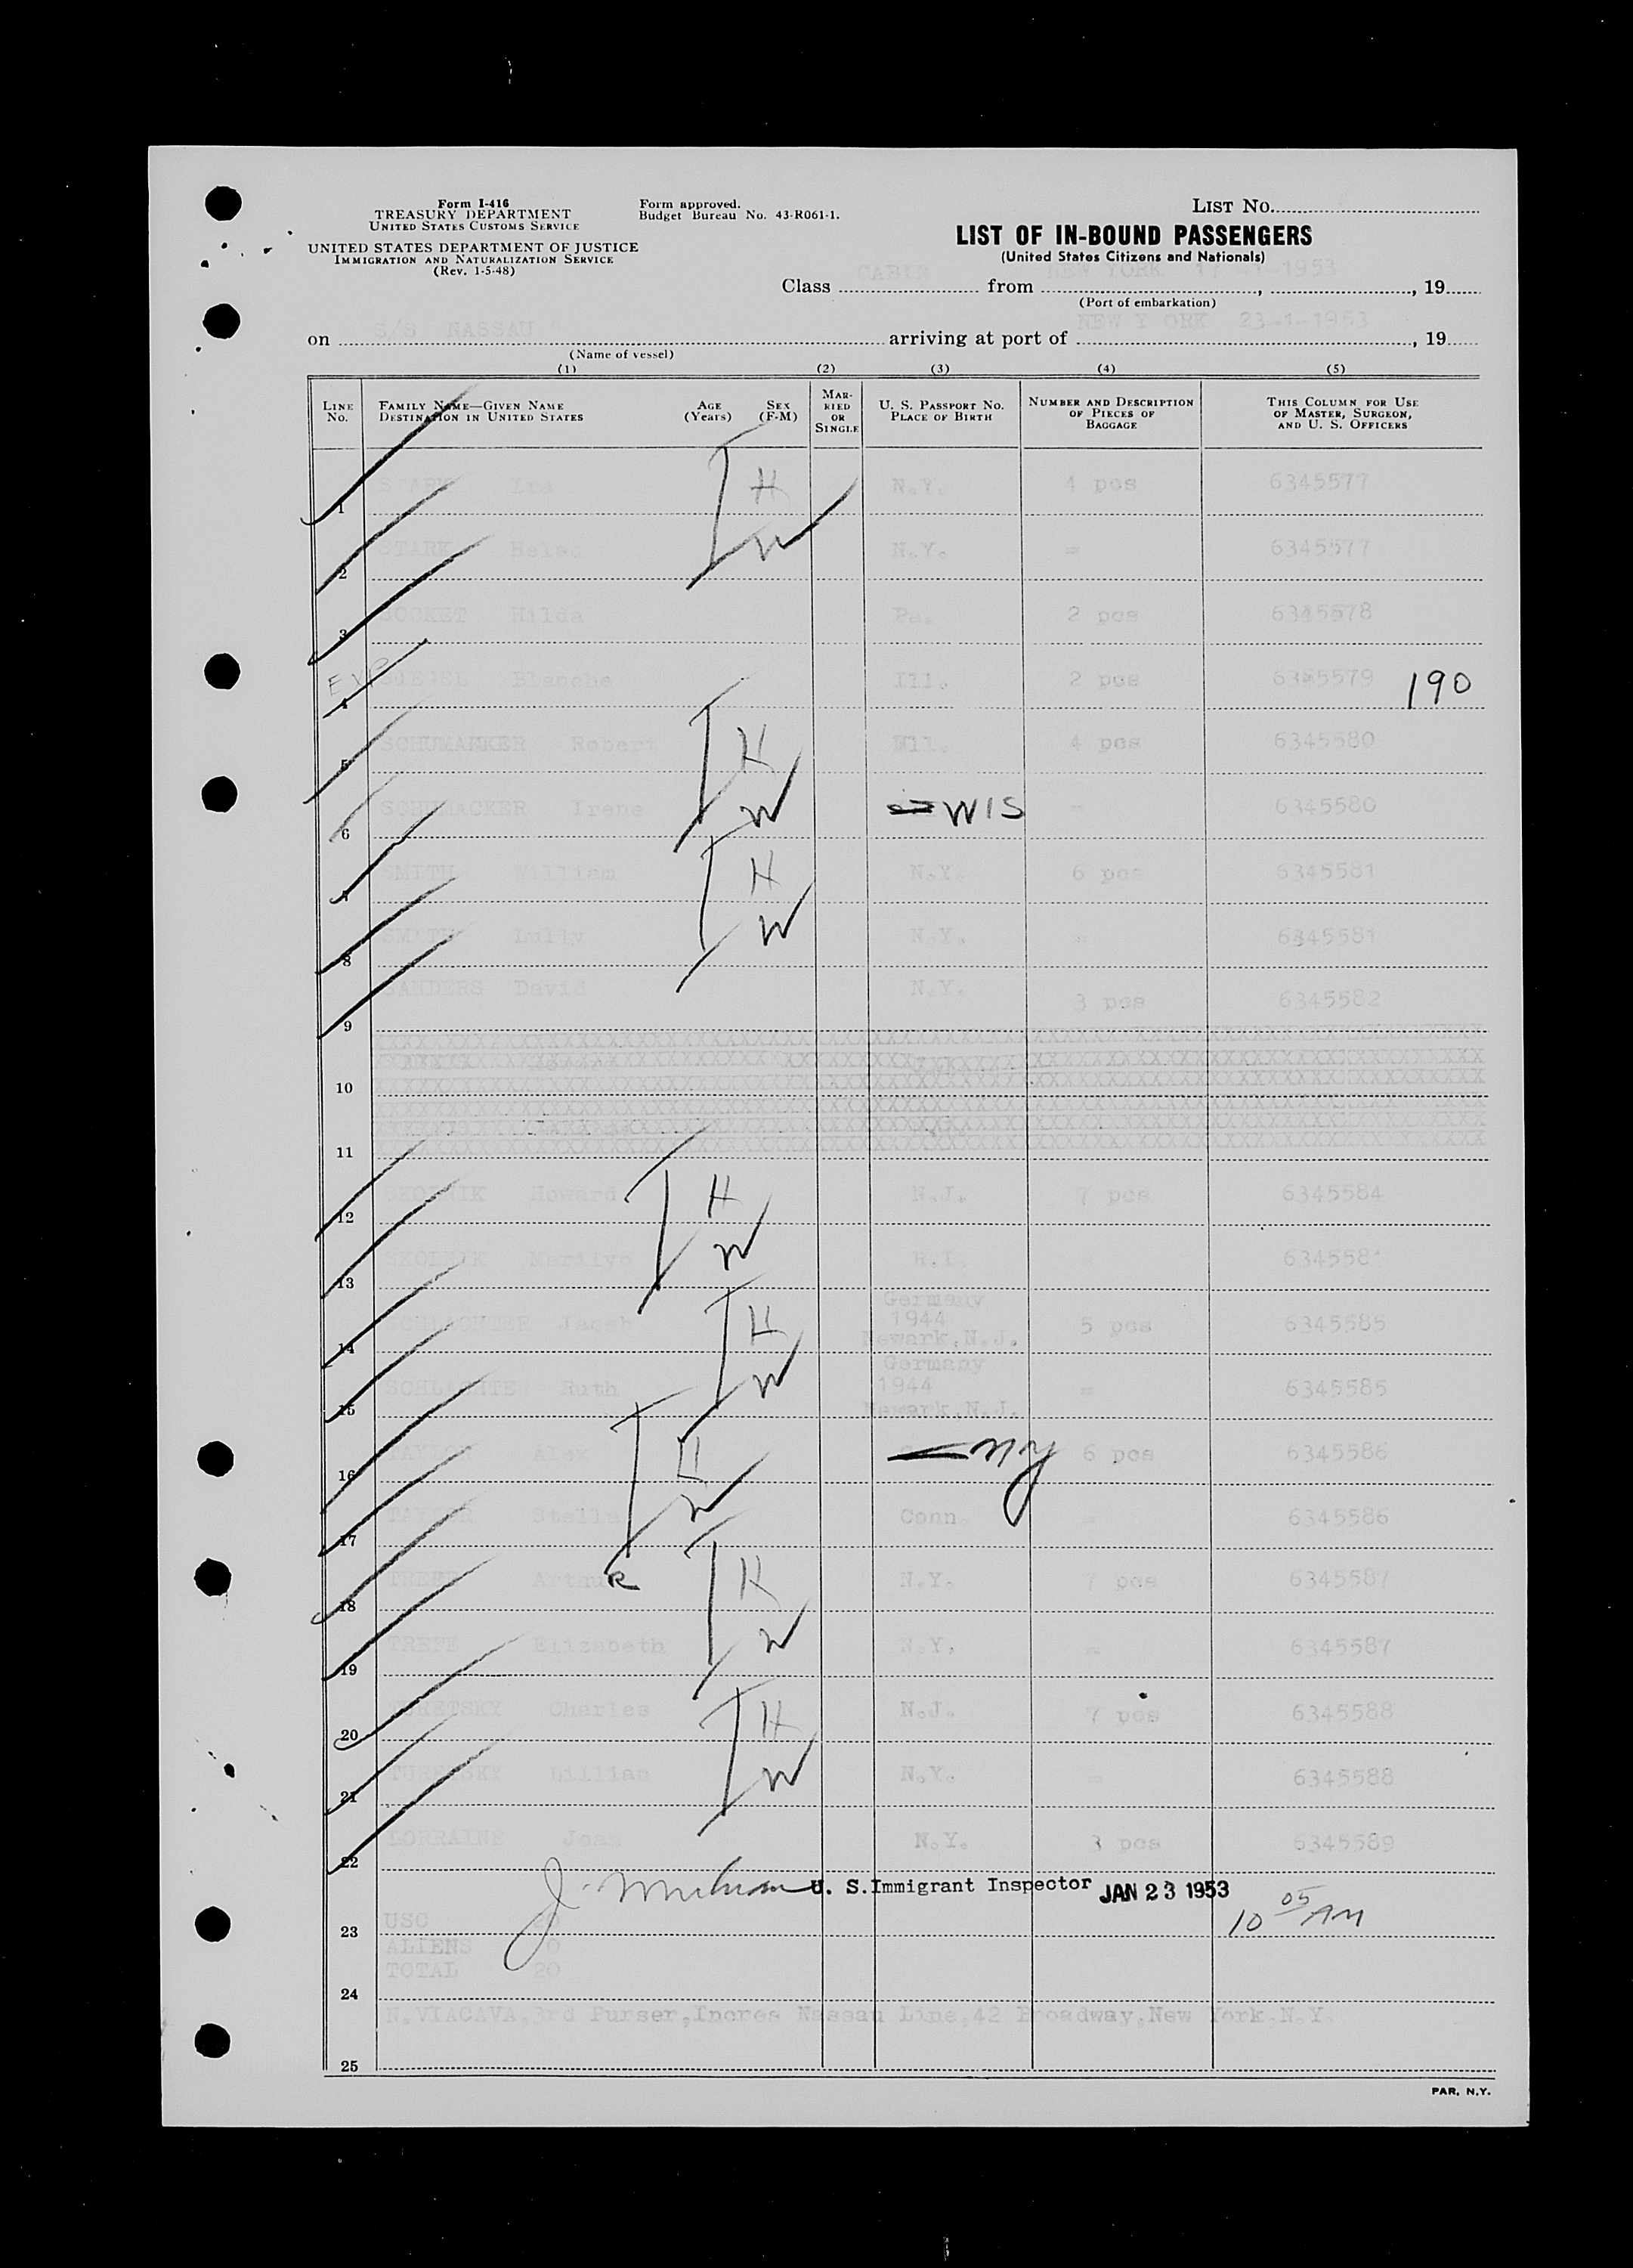 Form I-416
TREASURY DEPARTMENT
UNITED STATES CUSTOMS SERVICE
UNITED STATES DEPARTMENT OF JUSTICE
IMMIGRATION AND NATURALIZATION SERVICE
(Rev. 1-5-48)
Form approved.
Budget Bureau No. 43-R061-1.
LIST NO.
LIST OF IN-BOUND PASSENGERS
(United States Citizens and Nationals)
Class CABIN from NEW YORK 1953, 19
(Port of embarkation)
on S/S NASSAU arriving at port of NEW YORK 23-1-1953, 19
(Name of vessel)
(1) (2) (3) (4) (5)
LINE NO. FAMILY NAME—GIVEN NAME DESTINATION IN UNITED STATES AGE (Years) SEX (F-M) MARRIED OR SINGLE U. S. PASSPORT NO. PLACE OF BIRTH NUMBER AND DESCRIPTION OF PIECES OF BAGGAGE THIS COLUMN FOR USE OF MASTER, SURGEON, AND U. S. OFFICERS
1 STARK Ira H N.Y. 4 pcs 6345577
2 STARK W N.Y. = 6345577
3 SOCKET Hilda Pa. 2 pcs 6345578
4 SIEGEL Blanche Ill. 2 pcs 6345579 190
5 Robert H 4 pcs 6345580
6 SCHUMACKER Irene W WIS = 6345580
7 SMITH William H N.Y. 6 pcs 6345581
8 SMITH W N.Y. = 6345581
9 SANDERS David N.Y. 3 pcs 6345582
10
11
12 SKOLNIK Howard H N.J. 7 pcs 6345584
13 SKOLNIK Marilyn W =
14 Jacob H Germany 1944 Newark, N.J. 5 pcs 6345585
15 Ruth W Germany 1944 Newark, N.J. = 6345585
16 TAYLOR Alex H NY 6 pcs 6345586
17 TAYLOR Stella W Conn. = 6345586
18 Arthur H N.Y. 7 pcs 6345587
19 Elizabeth W N.Y. = 6345587
20 TURETSKY Charles H N.J. 7 pcs 6345588
21 TURETSKY Lillian W N.Y. = 6345588
22 LORRAINE Joan N.Y. 3 pcs 6345589
U. S. Immigrant Inspector JAN 23 1953
10 05 AM
23 USC 20
ALIENS 0
TOTAL 20
24
N. VIACAVA, 3rd Purser, Incres Nassau Line, 42 Broadway, New York, N.Y.
25
PAR, N.Y.